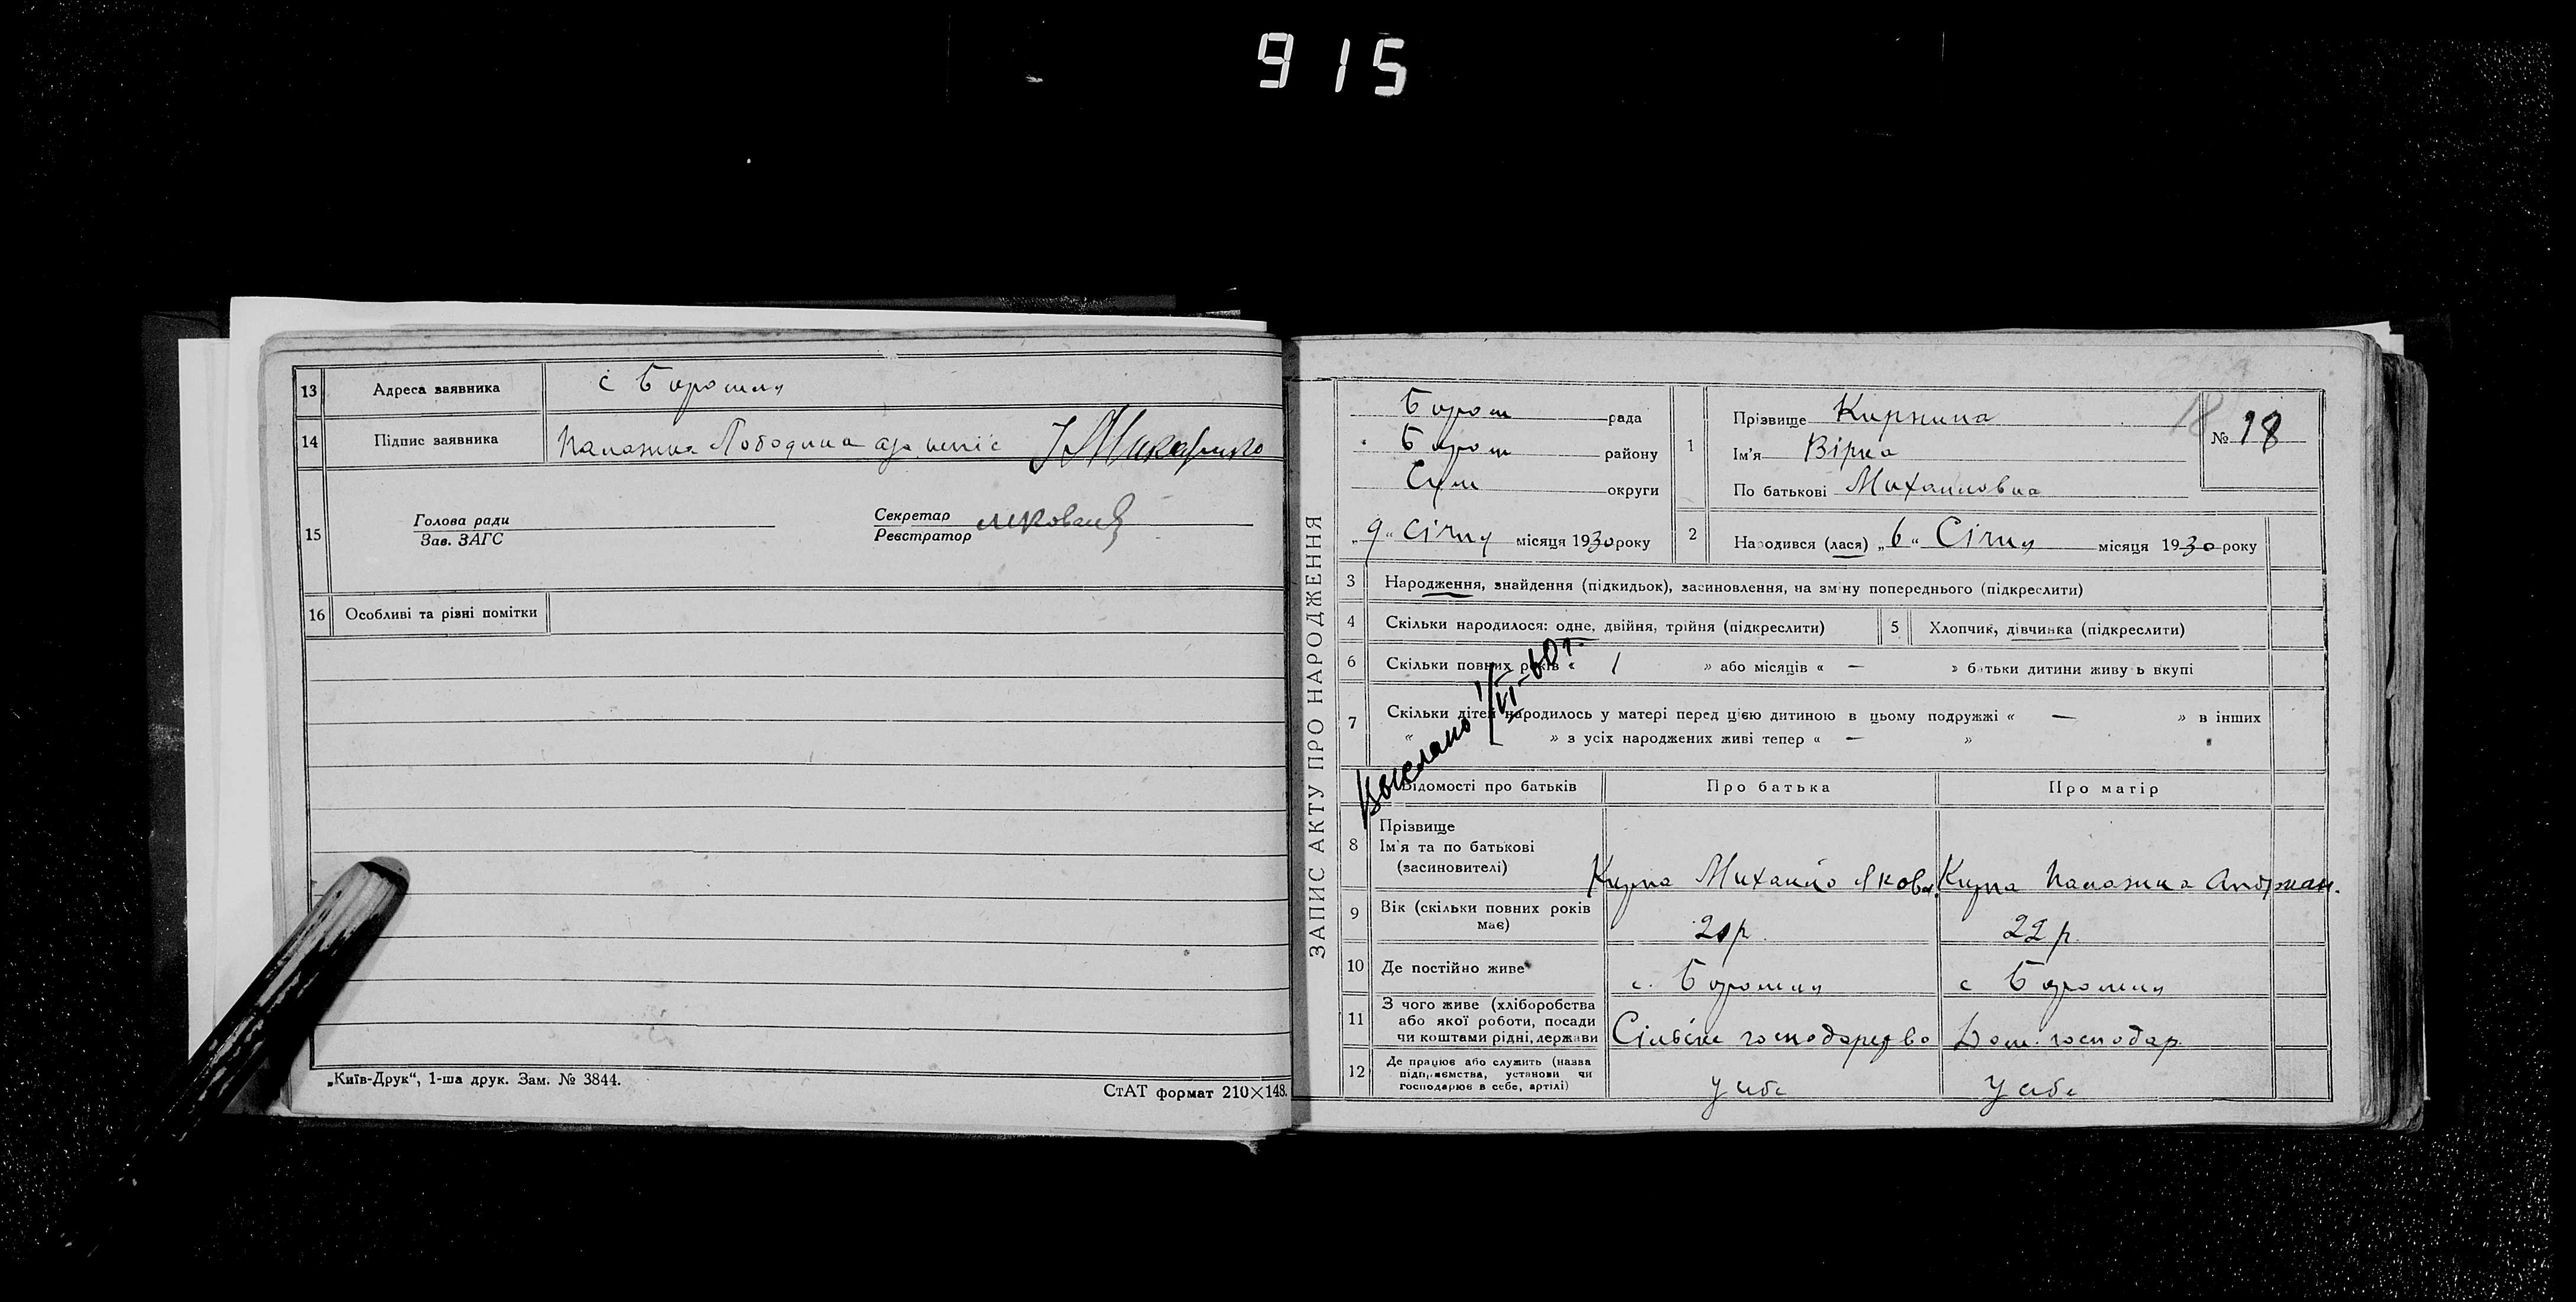 915
13 Адреса заявника с Боромля
14 Підпис заявника Палажка Лободина а за непис
15 Голова ради Секретар
Зав. ЗАГС Реєстратор
16 Особливі та різні помітки
„Київ-Друк“, 1-ша друк. Зам. № 3844.
СтАТ формат 210×148.
ЗАПИС АКТУ ПРО НАРОДЖЕННЯ
Бором рада
Бором району
Сум округи
„9“ Січня місяця 1930 року
1 Прізвище
Ім'я Вірка
По батькові Михаиловна
№ 18
18
2 Народився (лася) „6“ Січня місяця 1930 року
3 Народження, знайдення (підкидьок), засиновлення, на зміну попереднього (підкреслити)
4 Скільки народилося: одне, двійня, трійня (підкреслити) 5 Хлопчик, дівчинка (підкреслити)
6 Скільки повних років « 1 » або місяців « — » батьки дитини живуть вкупі
7 Скільки дітей народилось у матері перед цією дитиною в цьому подружжі « — » в інших
« » з усіх народжених живі тепер « — »
Выслано 1/VI-60г.
Відомості про батьків Про батька Про матір
8 Прізвище
Ім'я та по батькові
(засиновителі) Кирпа Михаило Яков. Кирпа Палажка
9 Вік (скільки повних років
має) 22 р.
10 Де постійно живе с. Боромля с Боромля
11 З чого живе (хліборобства
або якої роботи, посади
чи коштами рідні, держави Сільске господарство Дом. господар
12 Де працює або служить (назва
підприємства, установи чи
господарює в себе, артілі) У себе У себе